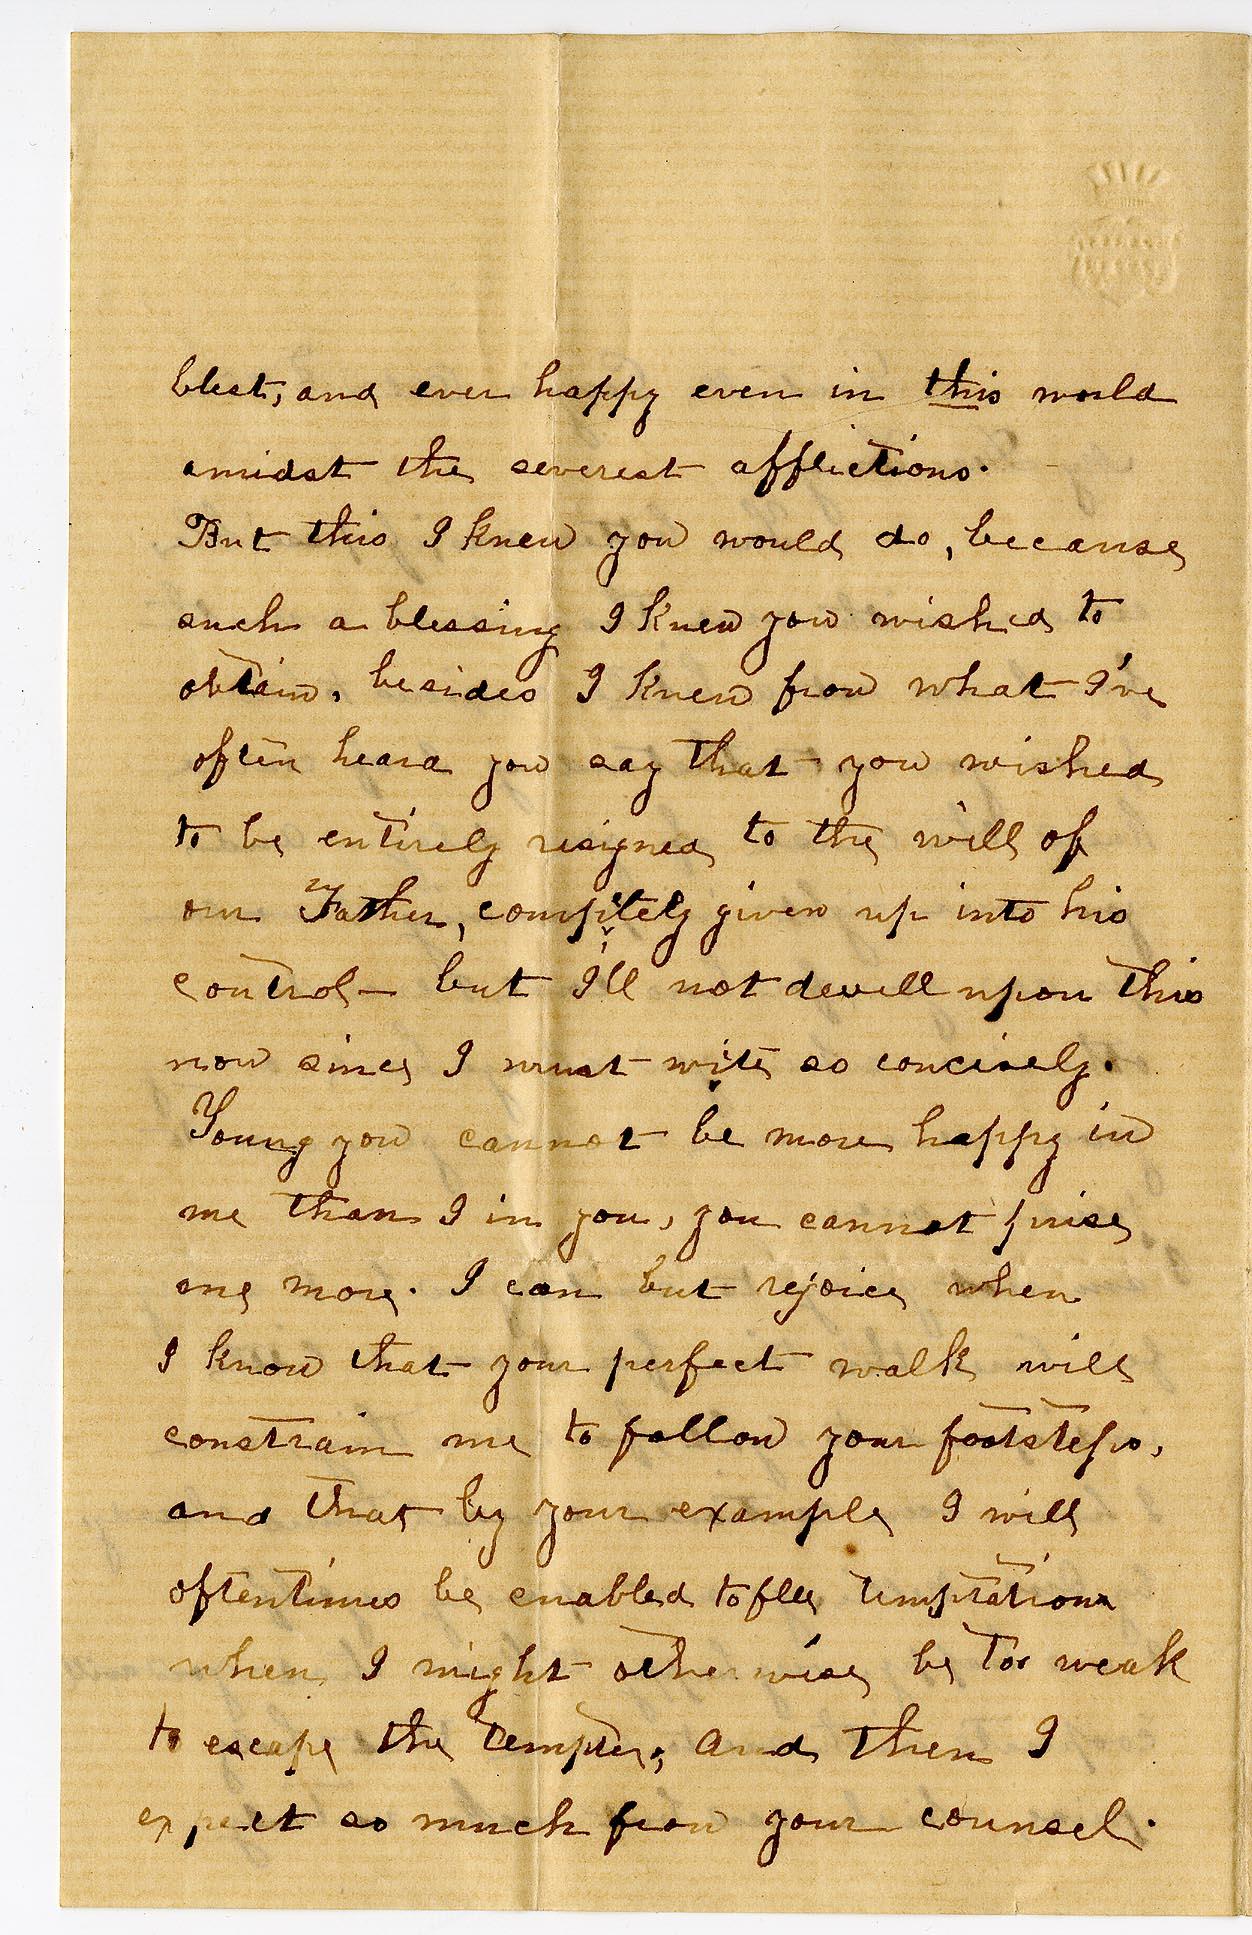 blest, and ever happy even in this world
amidst the severest afflictions.
But this I knew you would do, because
such a blessing I knew you wished to
obtain, besides I knew from what I've
often heard you say that you wished
to be entirely resigned to the will of
our Father, complitely given up into his
control — but I'll not dewell upon this
now since I must write so concisely.
Young you cannot be more happy in
me than I in you, you cannot prise
me more. I can but rejoice when
I know that your perfect walk will
constrain me to follow your footsteps,
and that by your example I will
oftentimes be enabled to flee temptation
when I might otherwise be too weak
to escape the tempter, and then I
expect so much from your counsel.